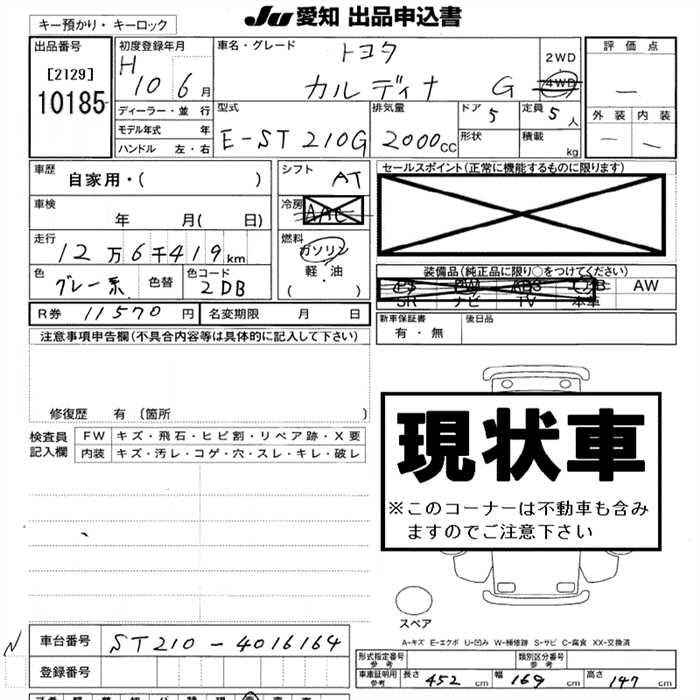 JU 愛知 出品申込書
キー預かり・キーロック
出品番号
[2129]
10185
初度登録年月
H 10 6月
ディーラー・並 行
モデル年式 年
ハンドル 左・右
車名・グレード
トヨタ
カルディナ G
2WD
4WD
型式
E-ST210G
排気量
2000CC
ドア 5
形状
定員 5人
積載 kg
評価点
—
外装 内装
— —
車歴
自家用・( )
車検
年 月( 日)
走行
12万6千419km
色
グレー系
色替
色コード
2DB
シフト
AT
冷房
AAC
燃料
ガソリン
軽・油
( ・ )
セールスポイント(正常に機能するものに限ります)
装備品(純正品に限り○をつけてください)
PS PW ABS エアB AW
SR ナビ TV 本革
R券 11570円 名変期限 月 日
新車保証書
有・無
後日品
注意事項申告欄(不具合内容等は具体的に記入して下さい)
修復歴 有 〔箇所 〕
検査員
記入欄
FW キズ・飛石・ヒビ割・リペア跡・X要
内装 キズ・汚レ・コゲ・穴・スレ・キレ・破レ
現状車
※このコーナーは不動車も含み
ますのでご注意下さい
スペア
A-キズ E-エクボ U-凹み W-補修跡 S-サビ C-腐食 XX-交換済
N
車台番号 ST210-4016164
登録番号
形式指定番号
参考
類別区分番号
参考
車庫証明用
参考
長さ 452cm 幅 169cm 高さ 147cm